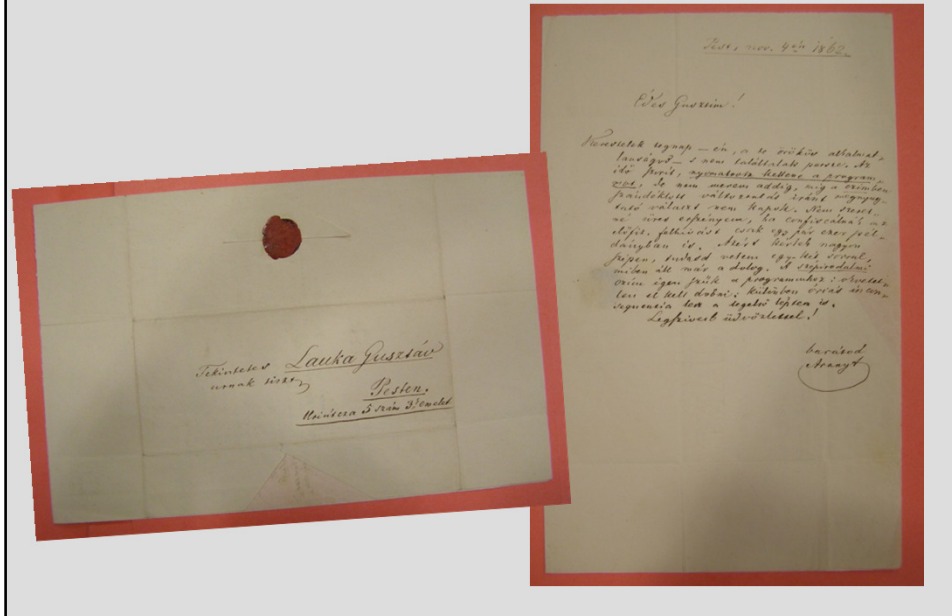 Tekintetes Lauka Gusztáv
urnak tisz
Pesten.
Uri utcza 5 szám 3. emelet
Pest, nov. 4én 1862.
Édes Gusztim!
tegnap — én, a te örökös alkalmat-
lankodód — s nem találtalak persze. Az
idő foly, nyomatnom kellene a program-
mot, de nem merem addig, míg a czímben
szándéklott változtatás iránt megnyug-
tató választ nem kapok. Nem szeret-
né üres erszényem, ha confiscálnák az
előfiz. felhívást csak egy pár ezer pél-
dányban is. Azért kérlek nagyon
szépen, tudasd velem egy-két sorral,
miben áll már a dolog. A szépirodalmi
czím igen szűk a programmhoz:
el kell dobni: különben óriás incon-
sequentia lesz a legelső lépten is.
Legszívesb üdvözlettel!
barátod
Arany J